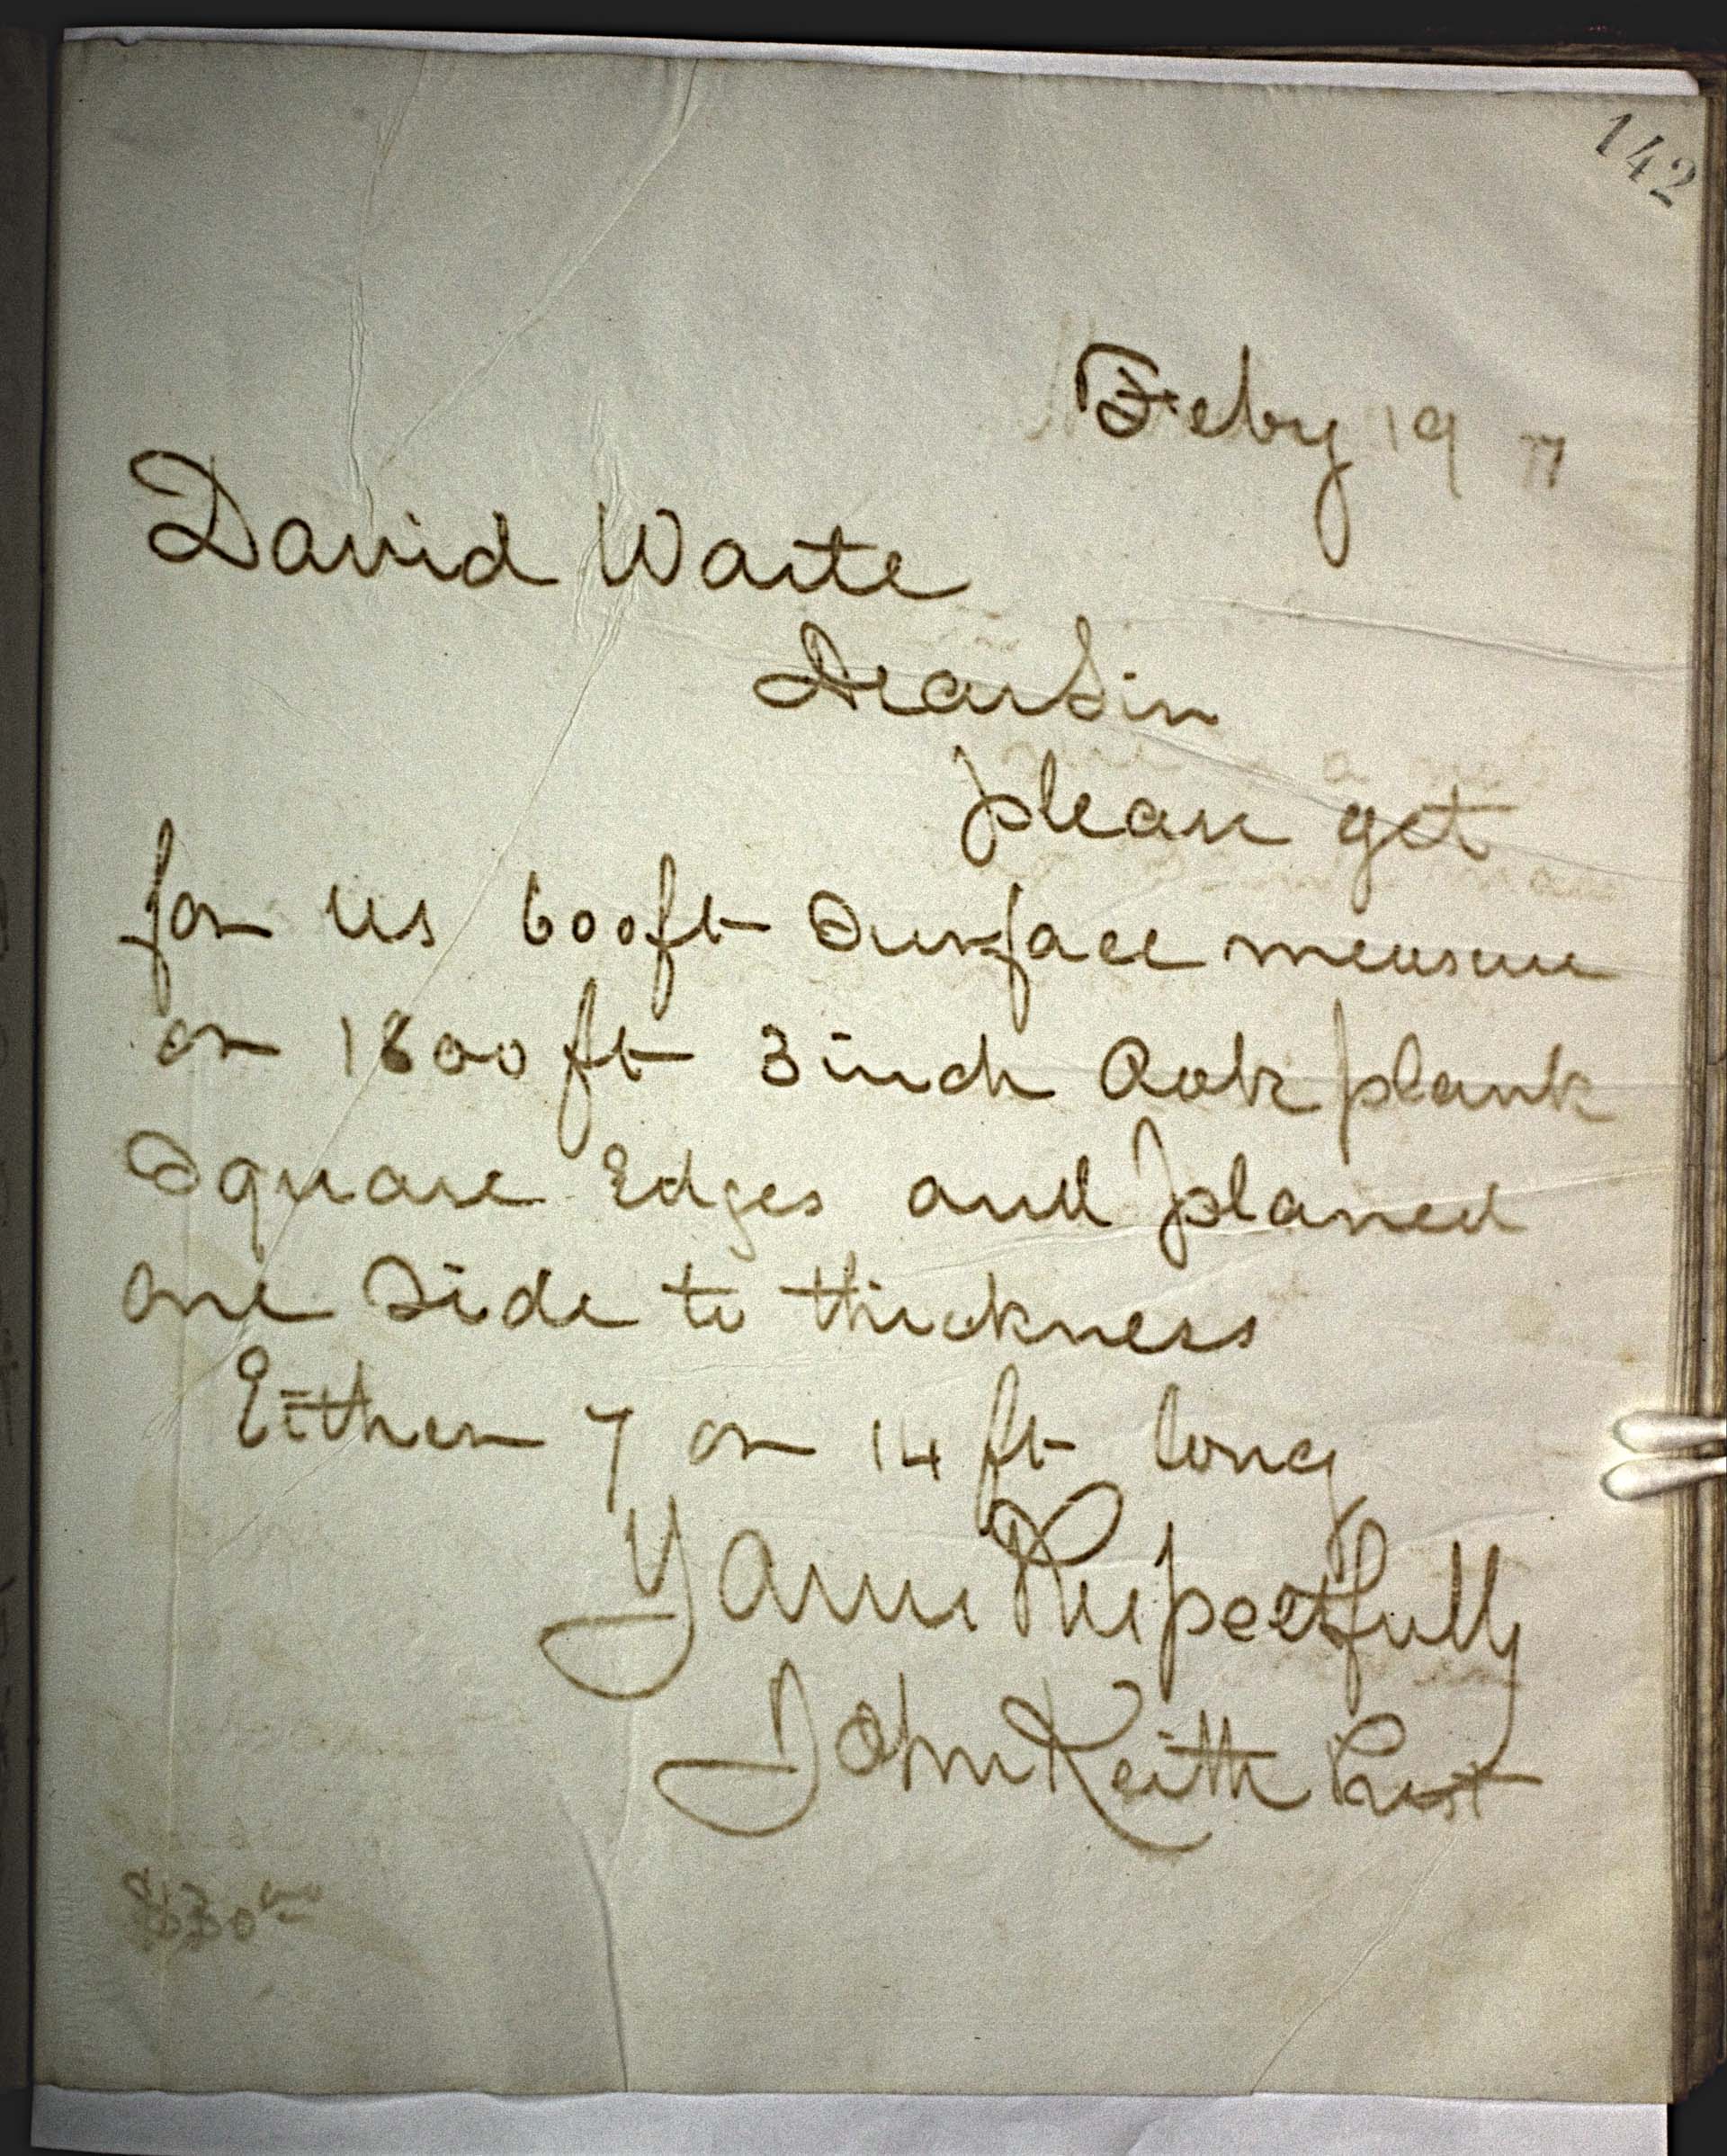 142
Feby 19
David Waite
Dear Sir
please get
for us 600 ft Surface measure
or 1800 ft 3 inch Oak plank
Square Edges and planed
one side to thickness
Either 7 or 14 ft long
Yours Respectfully
John Keith Prest
$30 00